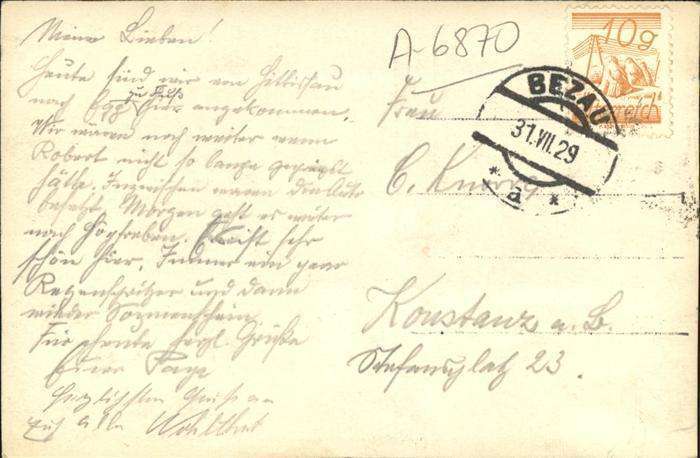 Meine Lieben!
Heute sind wir von Hittisau
zu Fuß
nach Egg hier angekommen.
Wir wären noch weiter wenn
Robert nicht so lange
hätte. Inzwischen waren die Auto
besetzt. Morgen geht es weiter
nach Hopfreben. Es ist sehr
schön hier. Immer ein paar
Regenspritzer und dann
wieder Sonnenschein.
Für heute herzl. Grüße
Euer
Herzlichsten Gruß an
Euch alle
A-6870
10g
BEZAU
31.VII.29
* a *
Frau
C.
Konstanz a. B.
Stefansplatz 23.